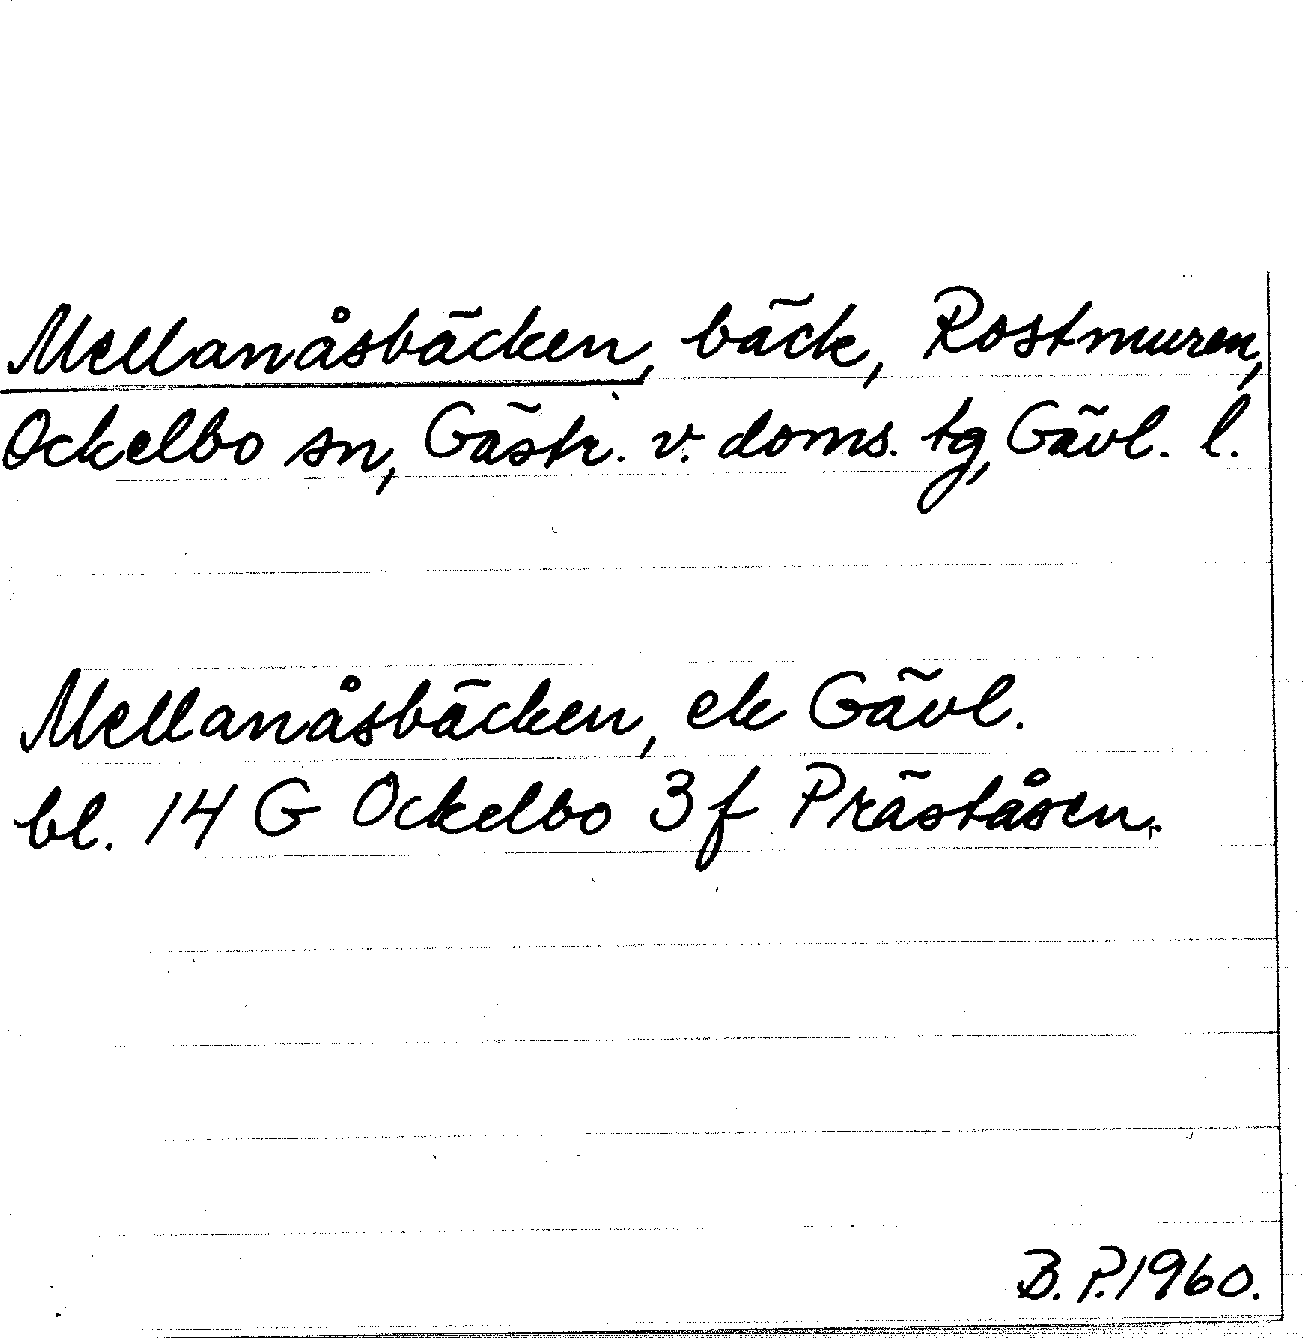 Mellanåsbäcken, bäck, Rostmuren,
Ockelbo sn, Gästr. v. doms. tg, Gävl. l.
Mellanåsbäcken, ek Gävl.
bl. 14 G Ockelbo 3 f Präståsen.
B. P. 1960.